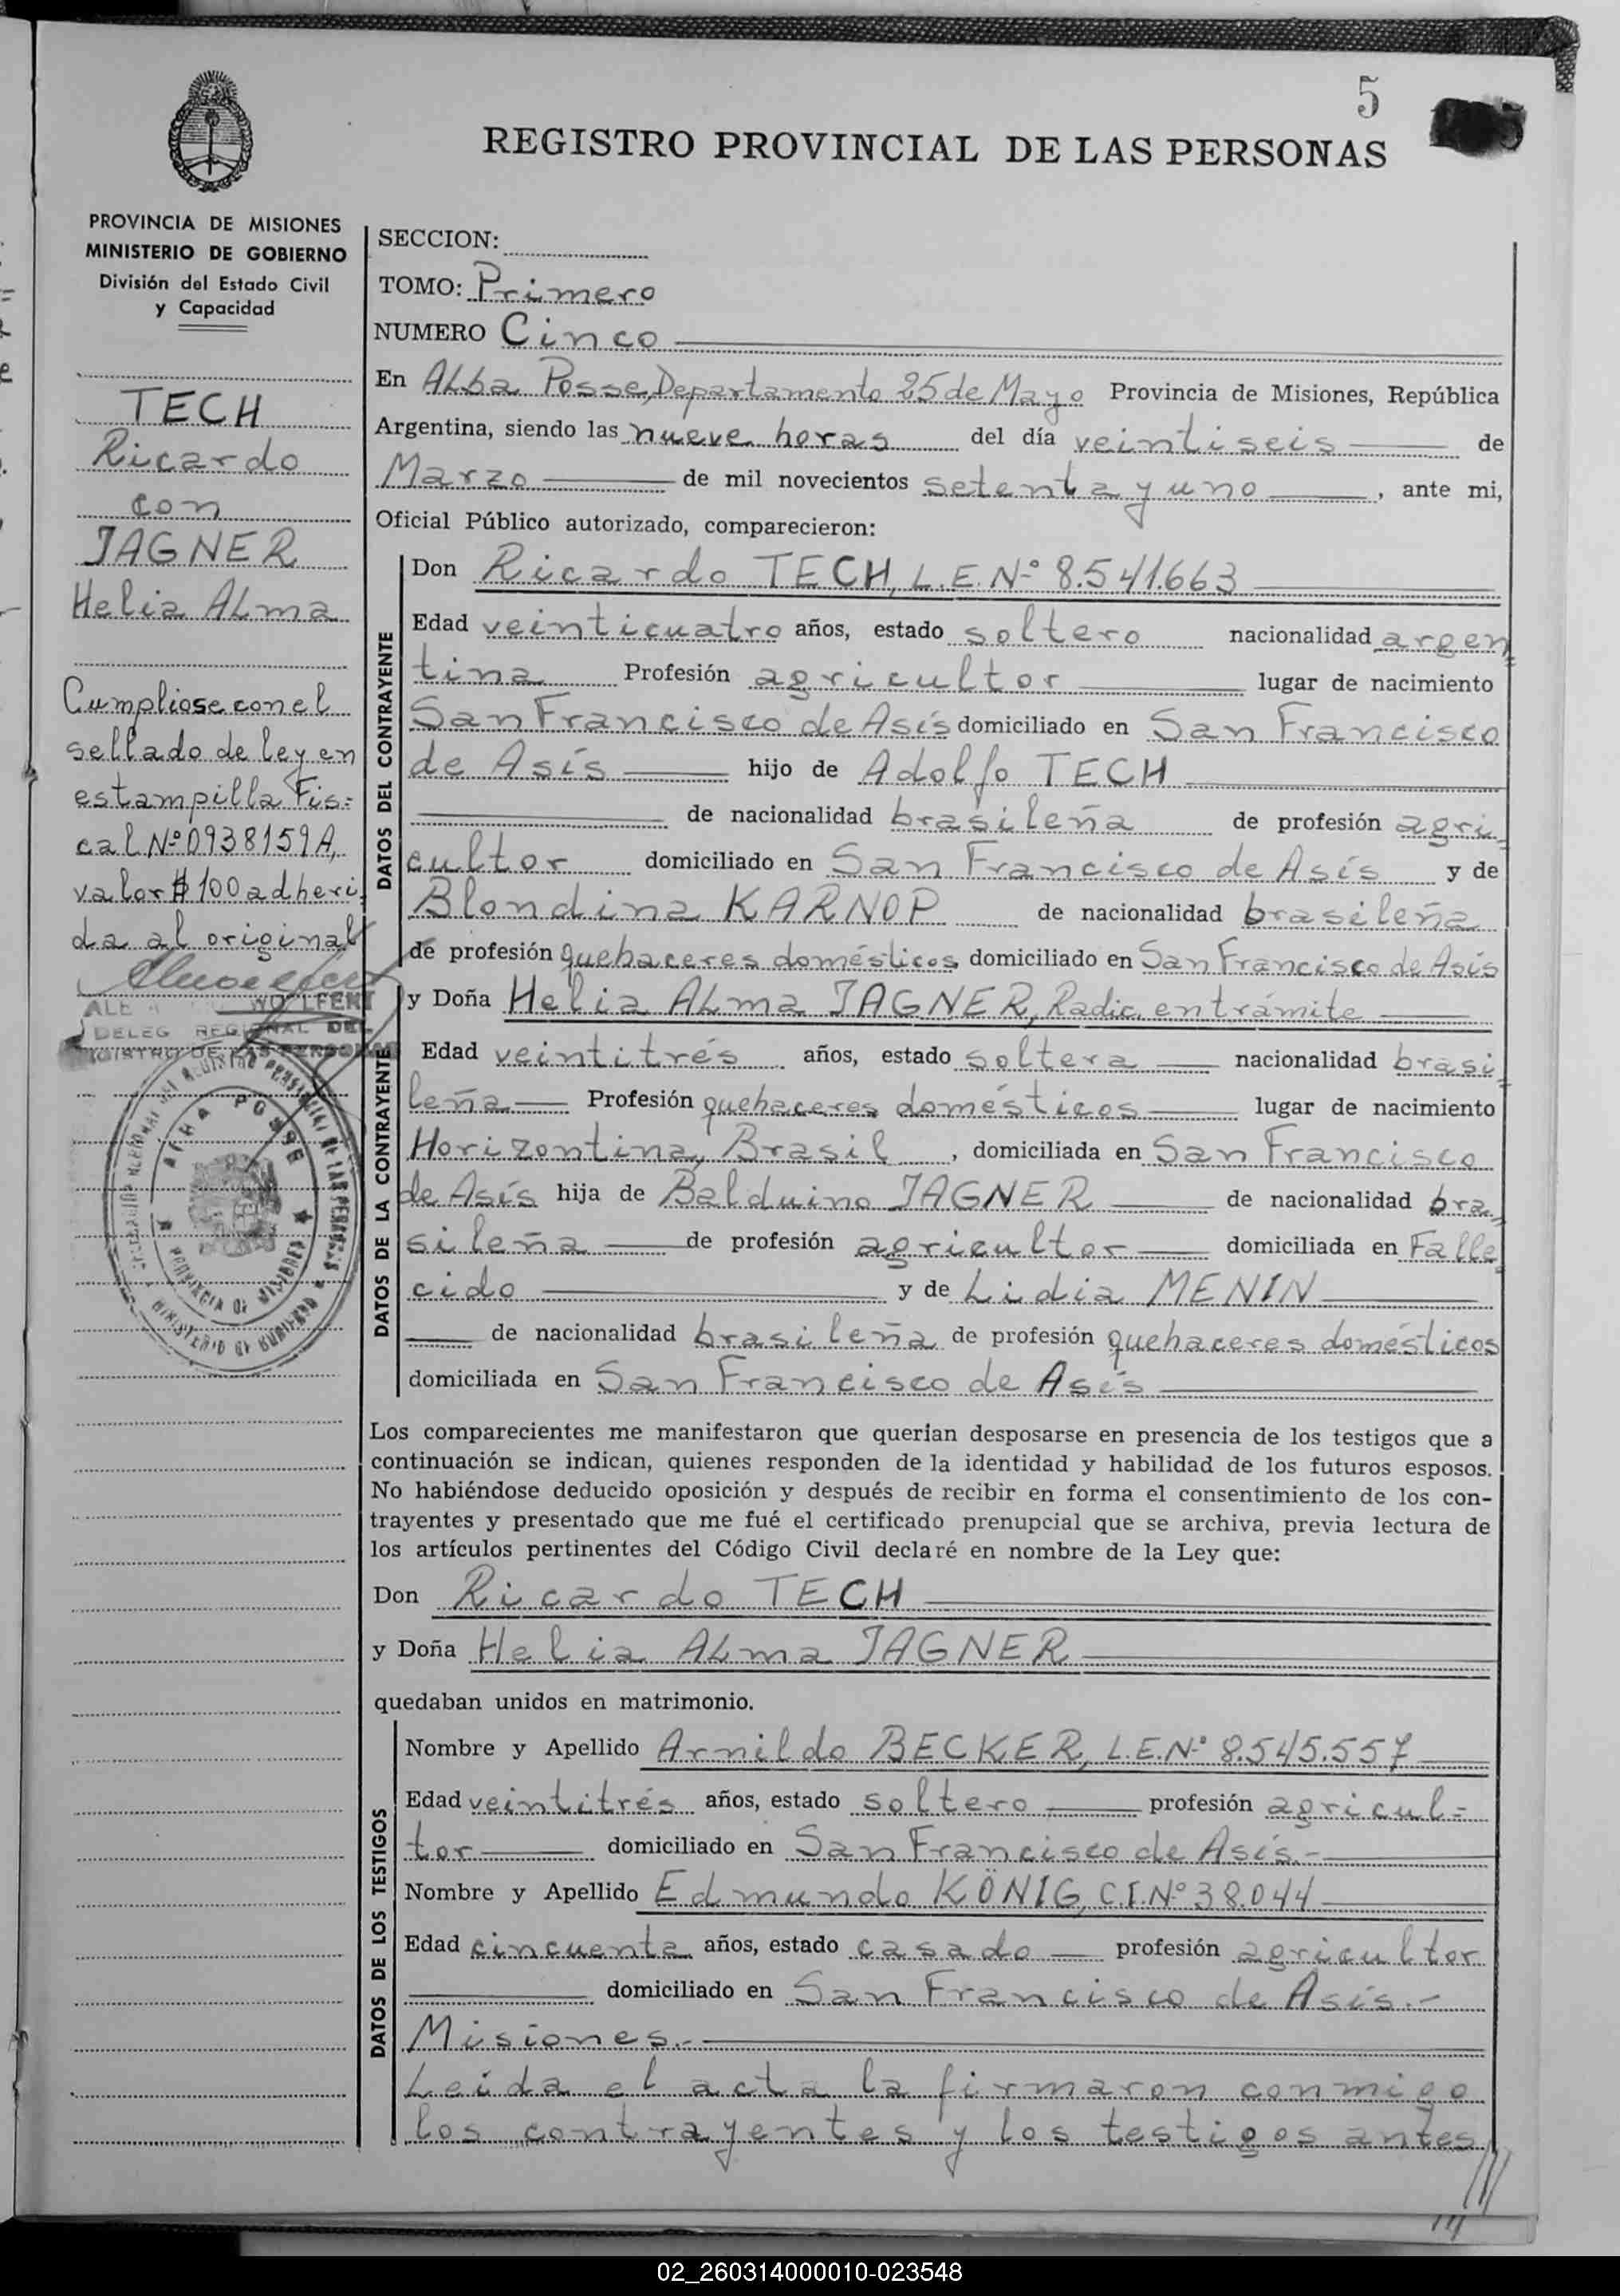 5
REGISTRO PROVINCIAL DE LAS PERSONAS
PROVINCIA DE MISIONES
MINISTERIO DE GOBIERNO
División del Estado Civil
y Capacidad
TECH
Ricardo
con
JAGNER
Helia ALma
Cumpliose con el
sellado de ley en
estampilla Fis=
cal Nº 0938159A,
valor $ 100 adheri=
da al original
WOLFERT
DELEG REGIONAL DEL
REGISTRO DE LAS PERSONAS
ALBA POSSE
PROVINCIA DE MISIONES
MINISTERIO DE GOBIERNO
SECCION:
TOMO: Primero
NUMERO Cinco
En ALba Posse, Departamento 25 de Mayo Provincia de Misiones, República
Argentina, siendo las nueve horas del día veintiseis de
Marzo de mil novecientos setenta y uno, ante mi,
Oficial Público autorizado, comparecieron:
DATOS DEL CONTRAYENTE
Don Ricardo TECH, L.E.Nº 8.541.663
Edad veinticuatro años, estado soltero nacionalidad argen=
tina Profesión agricultor lugar de nacimiento
San Francisco de Asís domiciliado en San Francisco
de Asís hijo de Adolfo TECH
de nacionalidad brasileña de profesión agri=
cultor domiciliado en San Francisco de Asís y de
Blondina KARNOP de nacionalidad brasileña
de profesión quehaceres domésticos domiciliado en San Francisco de Asís
DATOS DE LA CONTRAYENTE
y Doña Helia ALma JAGNER, Radic. en trámite
Edad veintitrés años, estado soltera nacionalidad brasi=
leña Profesión quehaceres domésticos lugar de nacimiento
Horizontina, Brasil, domiciliada en San Francisco
de Asís hija de Balduino JAGNER de nacionalidad bra=
sileña de profesión agricultor domiciliada en Falle=
cido y de Lidia MENIN
de nacionalidad brasileña de profesión quehaceres domésticos
domiciliada en San Francisco de Asís
Los comparecientes me manifestaron que querían desposarse en presencia de los testigos que a
continuación se indican, quienes responden de la identidad y habilidad de los futuros esposos.
No habiéndose deducido oposición y después de recibir en forma el consentimiento de los con-
trayentes y presentado que me fué el certificado prenupcial que se archiva, previa lectura de
los artículos pertinentes del Código Civil declaré en nombre de la Ley que:
Don Ricardo TECH
y Doña Helia ALma JAGNER
quedaban unidos en matrimonio.
DATOS DE LOS TESTIGOS
Nombre y Apellido Arnildo BECKER, L.E.Nº 8.545.557
Edad veintitrés años, estado soltero profesión agricul=
tor domiciliado en San Francisco de Asís.-
Nombre y Apellido Edmundo KÖNIG, C.I.Nº 38.044
Edad cincuenta años, estado casado profesión agricultor
domiciliado en San Francisco de Asís.-
Misiones.-
Leída el acta la firmaron conmigo
los contrayentes y los testigos antes
02_260314000010-023548